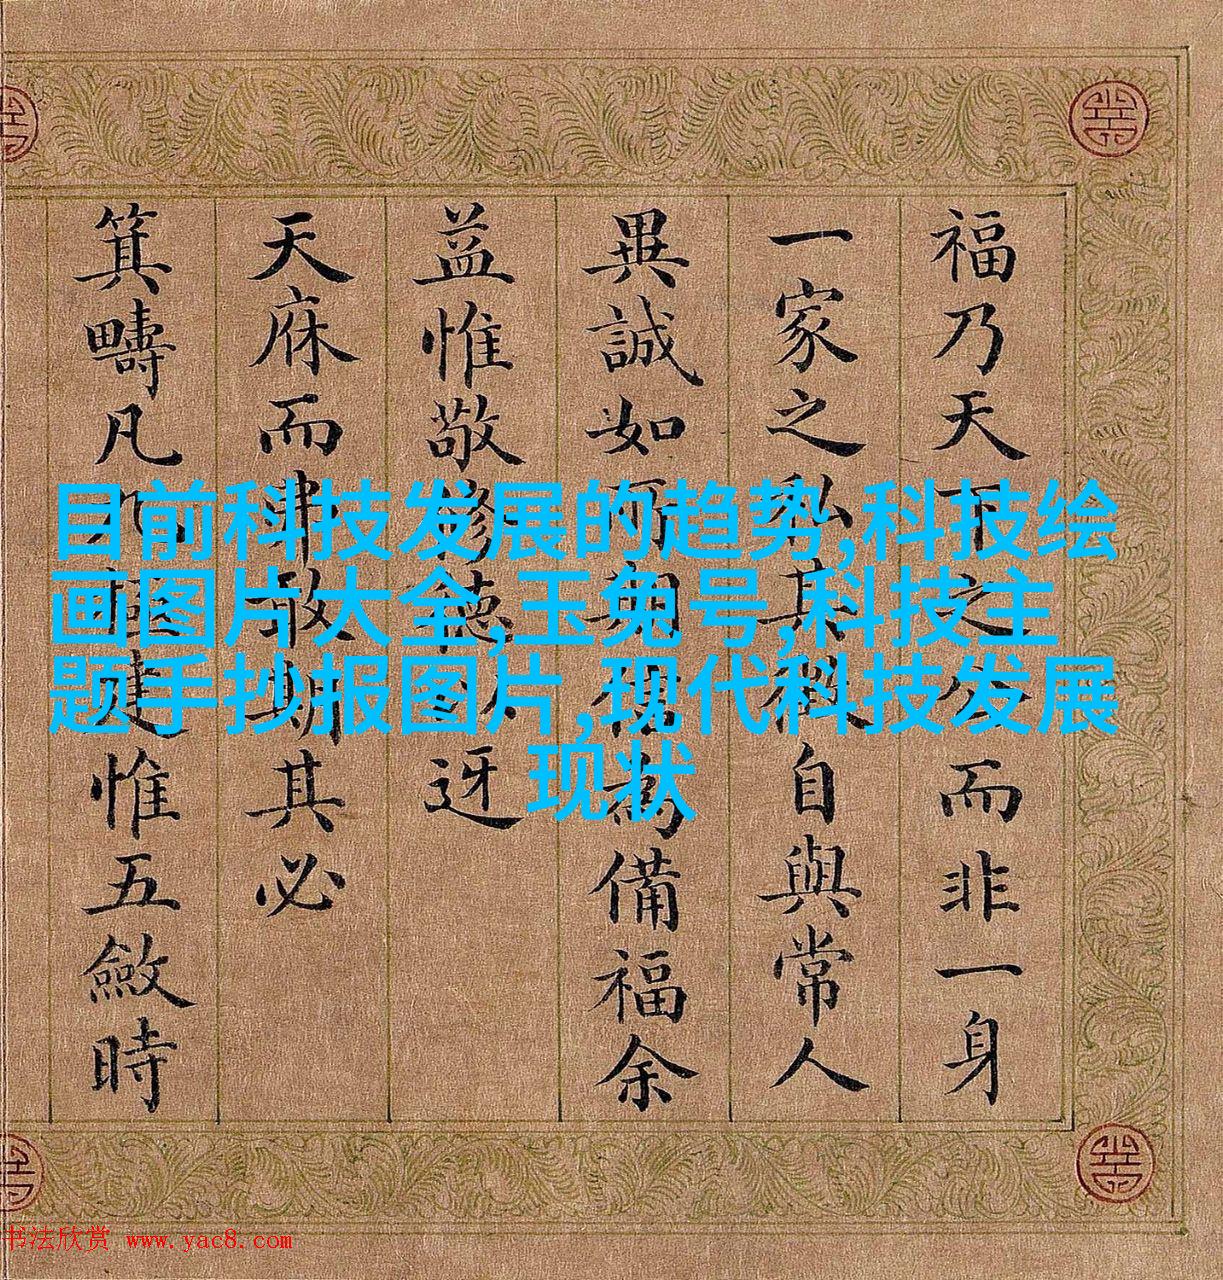 福乃天下之公而非一身
一家之私其自與常人
異誠如期為備福余
益惟敬修德以迓
天庥而非敢期其必
箕疇凡九極建惟五斂時
目前科技发展的趋势,科技绘
画图片大全,玉兔号,科技主
题手抄报图片,现代科技发展
现状
书法欣赏 www.yac8.com